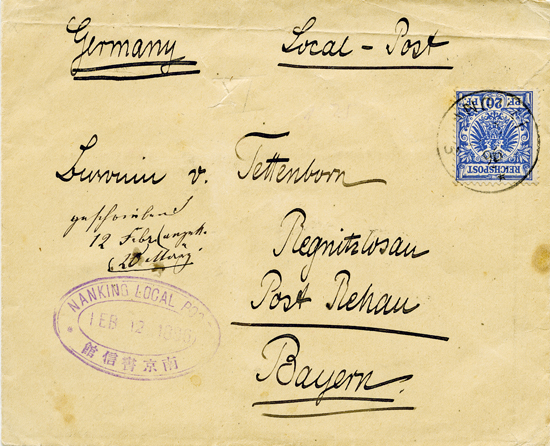 Germany Local-Post
Baronin v. Tettenborn
geschrieben
12 Febr
(20 März)
Regnitzlosau
Post Rehau
Bayern
REICHSPOST
20
NANKING LOCAL POST
FEB 12
南京書信館